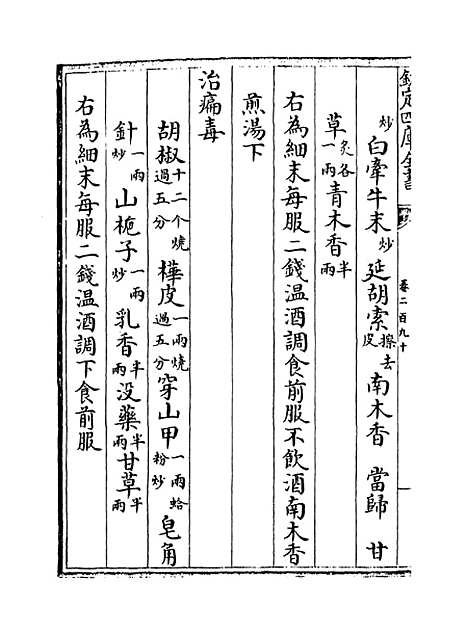 欽定四庫全書 卷二百九十
炒 白牽牛末炒 延胡索擦去皮 南木香 當歸 甘
草炙各一兩 青木香半兩
右為細末每服二錢温酒調食前服不飲酒南木香
煎湯下
治痛毒
胡椒十二个燒過五分 樺皮一兩燒過五分 穿山甲一兩蛤粉炒 皂角
針一兩炒 山桅子一兩炒 乳香半兩 没藥半兩 甘草半兩
右為細末每服二錢温酒調下食前服